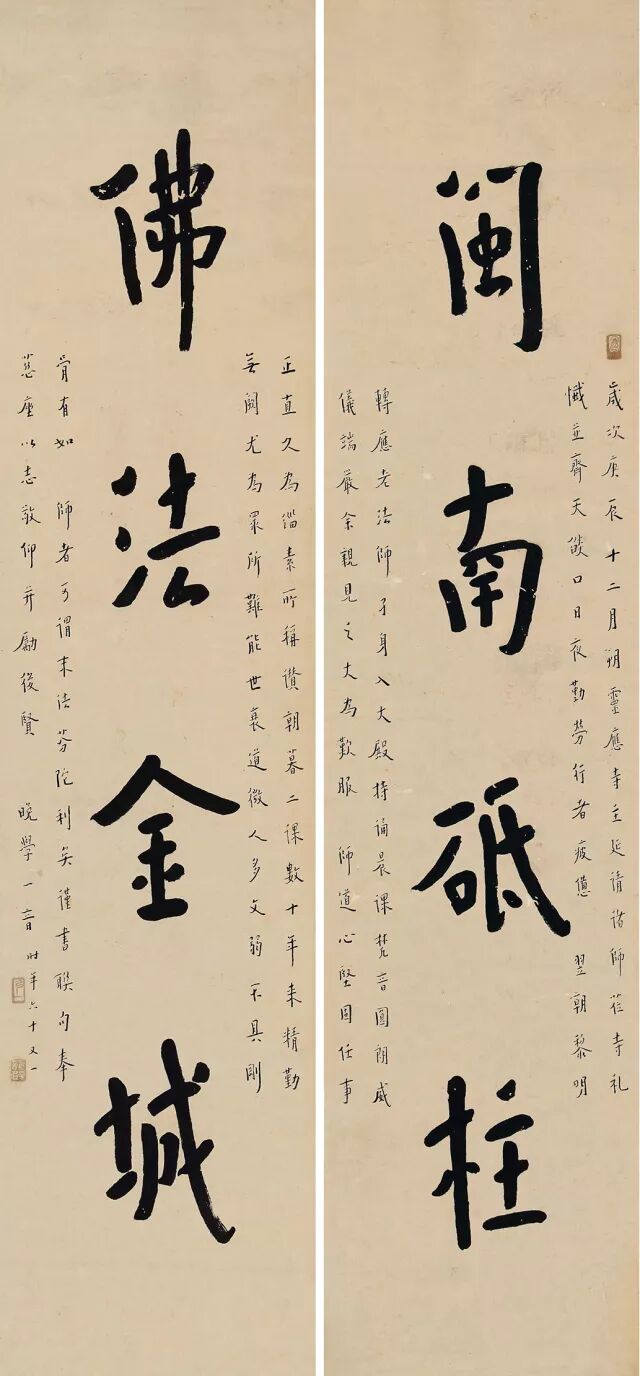 闽南砥柱
歲次庚辰十二月朔靈應寺主延請諸師莅寺礼
懺並齊天燄口日夜勤勞行者疲憊 翌朝黎明
轉應老法師孑身入大殿持誦晨課梵音圓朗威
儀端嚴余親見之大為歎服 師道心堅固任事
佛法金城
正直久為緇素所稱讚朝暮二課數十年来精勤
無闕尤為眾所難能世衰道微人多文弱不具剛
骨有如 師者可謂末法芬陀利矣謹書聯句奉
慈座以志敬仰并勵後賢 晚學一音 时年六十又一